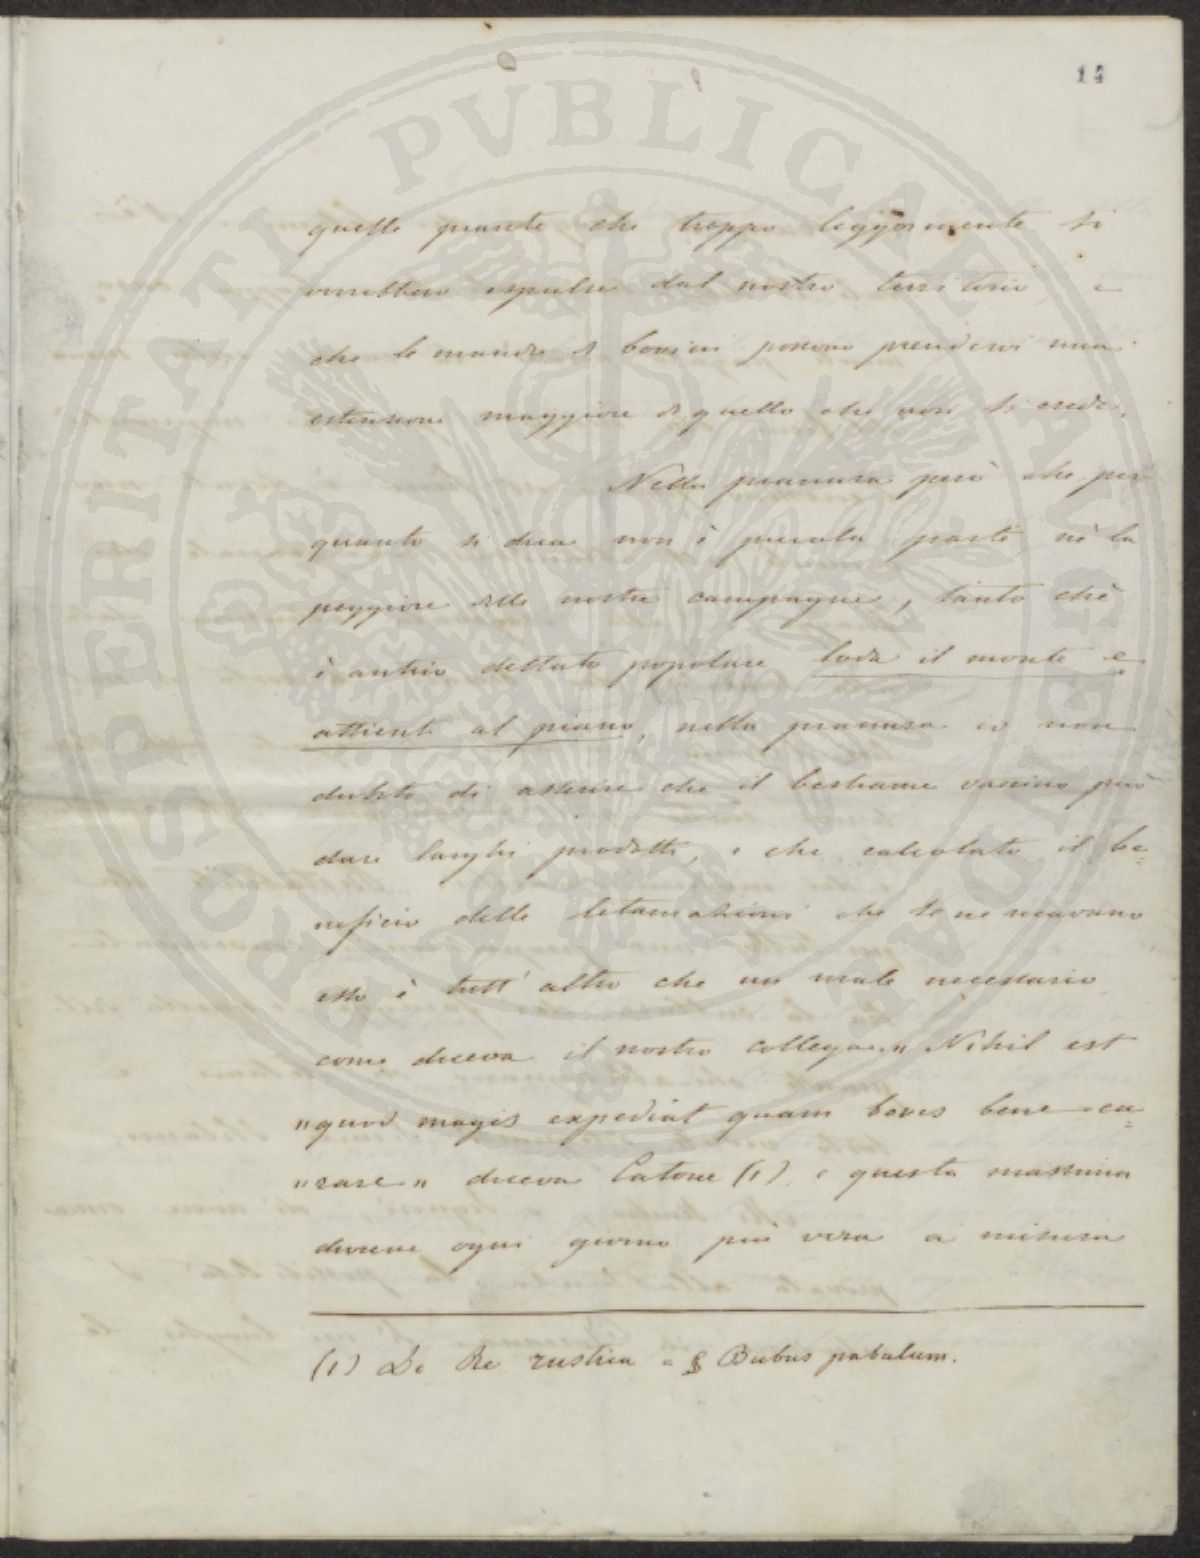 14
quelle piante che troppo leggermente si
vorrebbero espulse dal nostro territorio, e
che le mandre di bovini possono prendervi una
estensione maggiore di quello che non si crede.
Nella pianura però che, per
quanto si dica non è piccola parte, nè la
peggiore delle nostre campagne, tanto chè
è antico dettato popolare loda il monte e
attienti al piano, nella pianura io non
dubito di asserire che il bestiame vaccino può
dare larghi prodotti, e che calcolato il be=
neficio delle letamazioni che se ne ricavano
esso è tutt'altro che un male necessario
come diceva il nostro collega. „ Nihil est
„ quod magis expediat quam boves bene cu=
„ rare „ diceva Catone (1), e questa massima
diviene ogni giorno più vera a misura
(1) De Re rustica = § Bubus pabulum.
PROSPERITATI PVBLICAE AVGENDAE